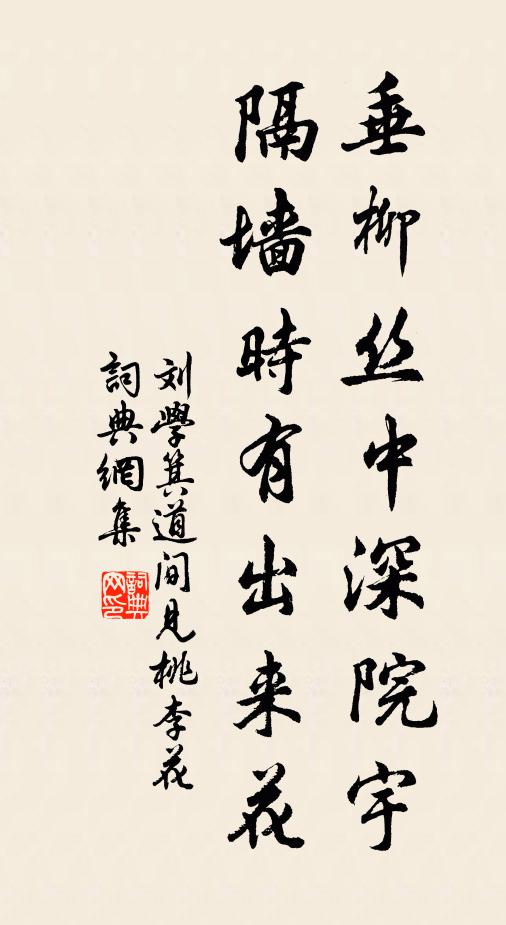 垂柳丝中深院宇
隔墙時有出来花
刘學箕道间见桃李花
詞典網集
詞典网印